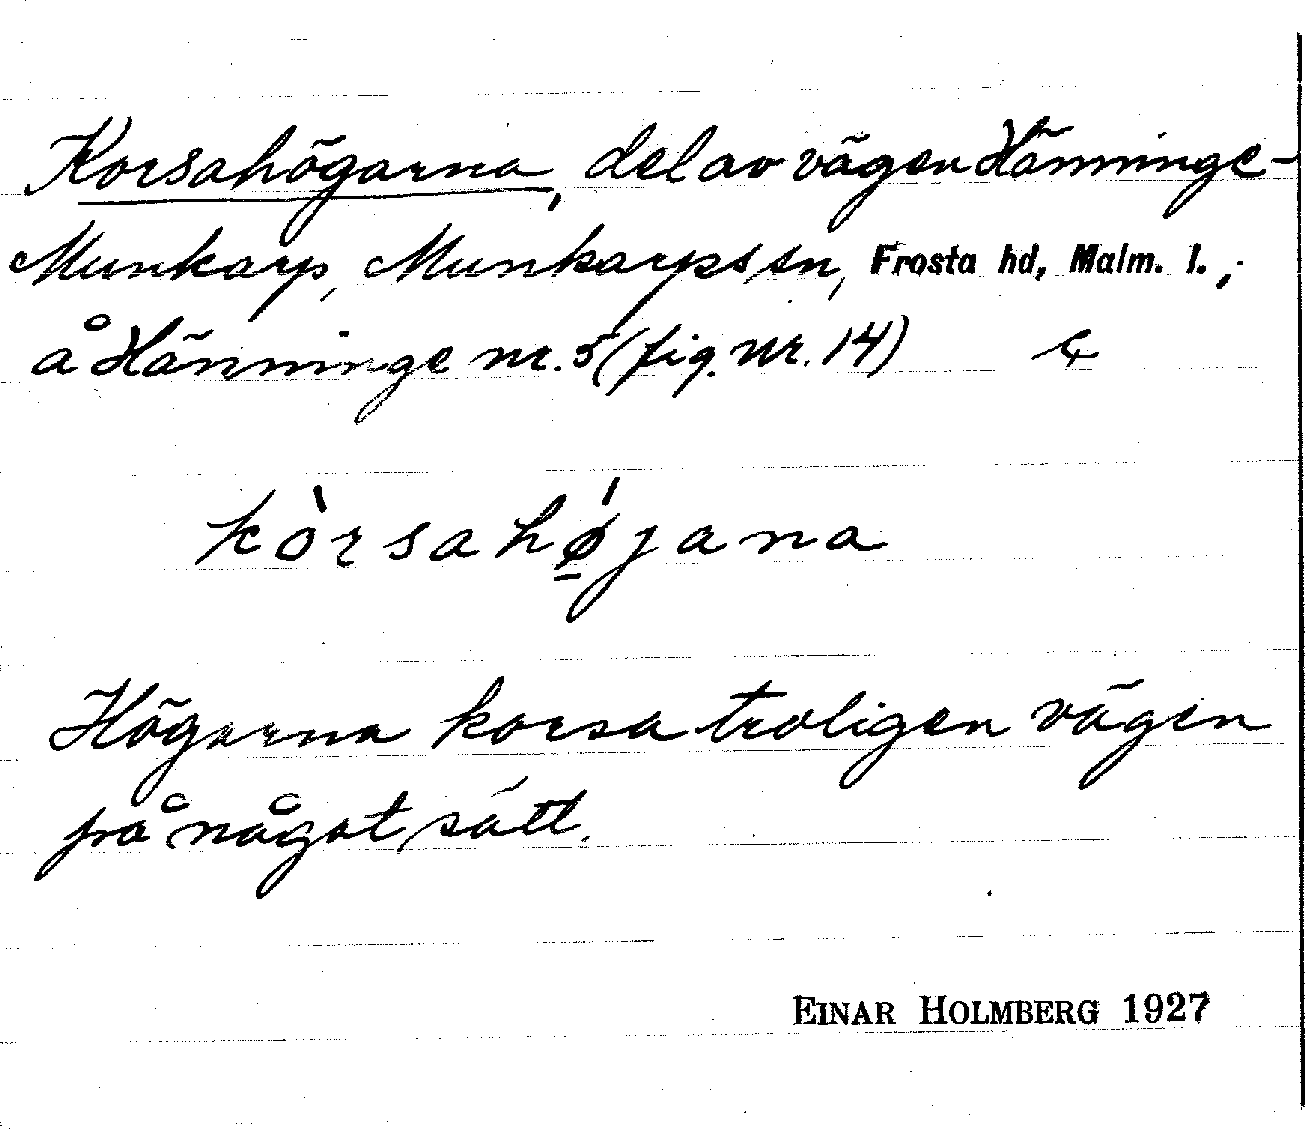 Korsahögarna, del av vägen Hänninge-
Munkarp, Munkarps sn, Frosta hd, Malm. l.,
å Hänninge nr. 5 (fig. Nr. 14)
kòrsahǿ̱jana
Högarna korsa troligen vägen
på något sätt.
EINAR HOLMBERG 1927